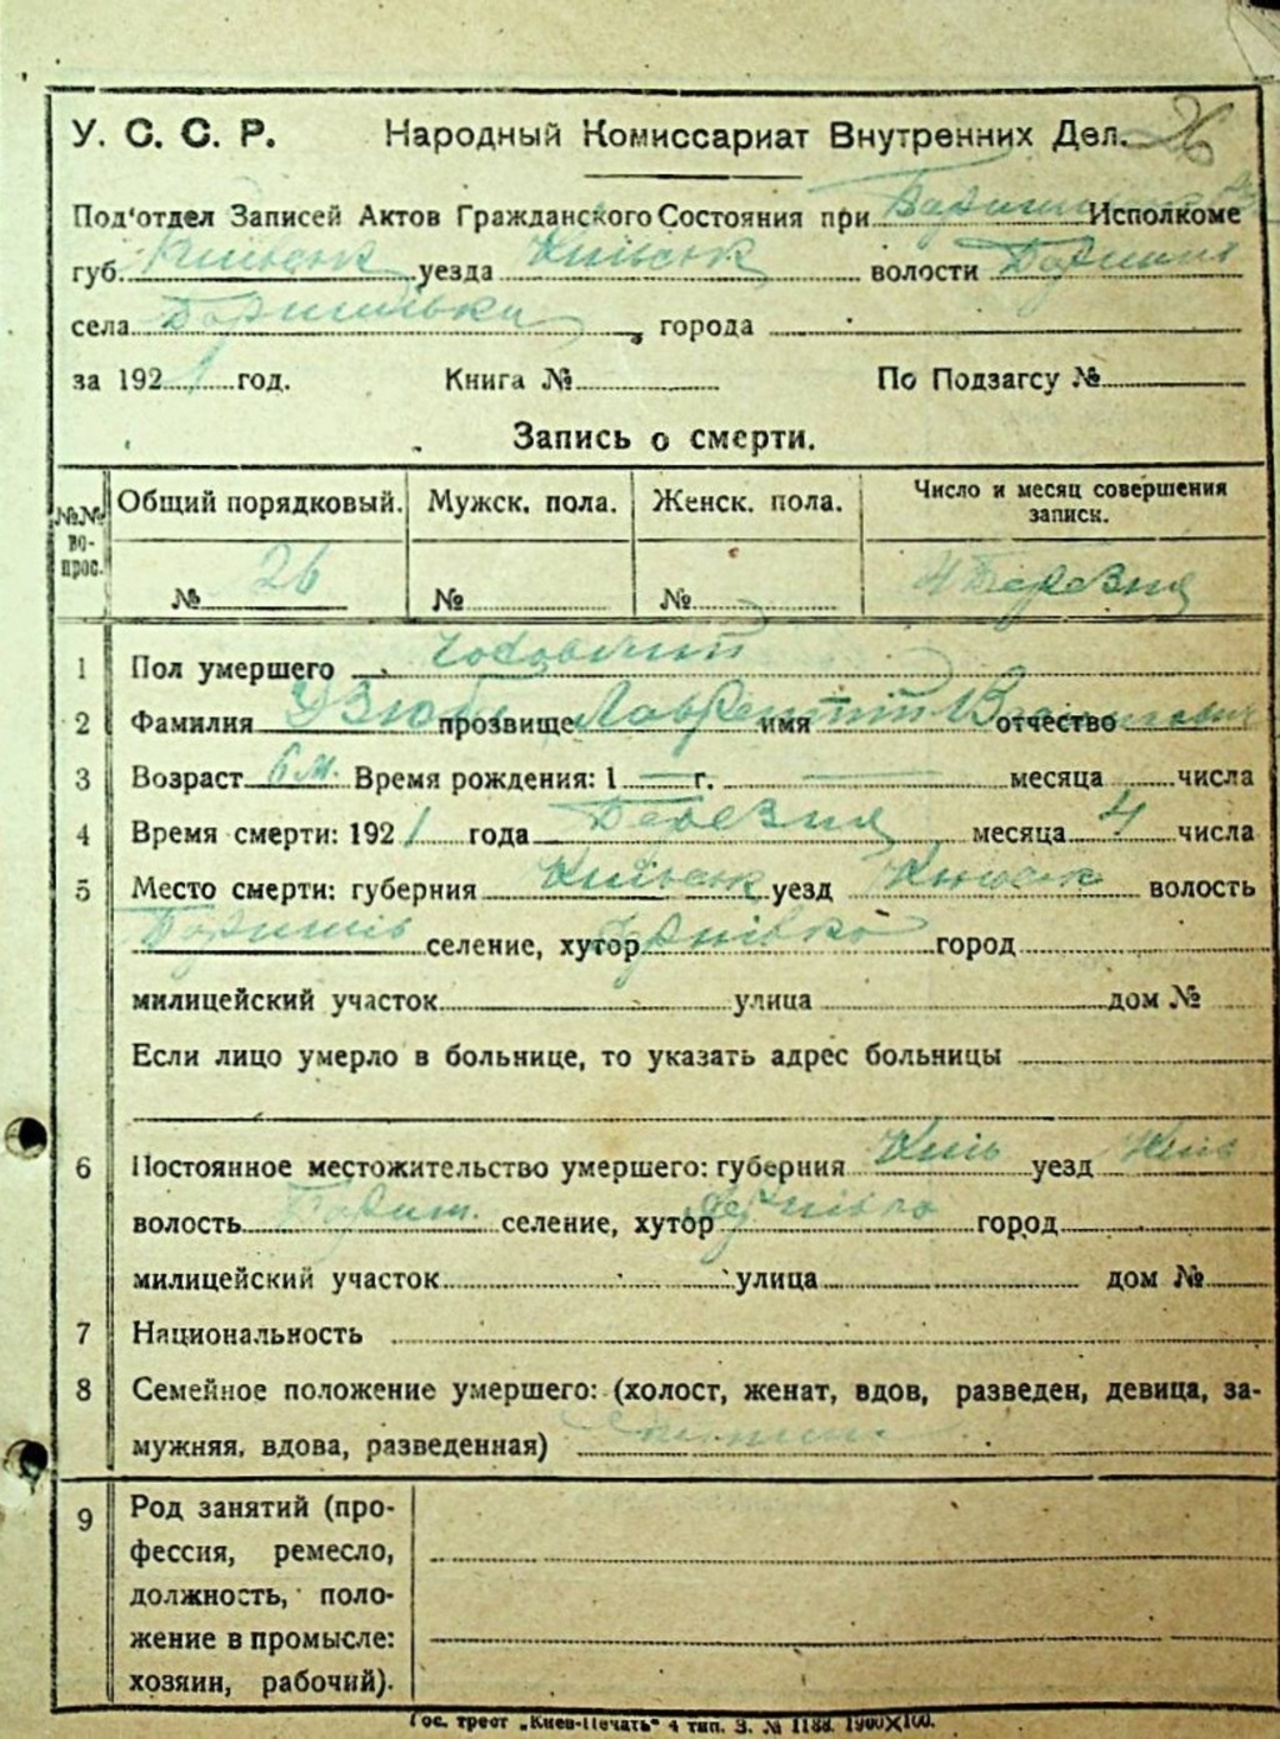 У. С. С. Р. Народный Комиссариат Внутренних Дел. 26
Под'отдел Записей Актов Гражданского Состояния при Исполкоме
губ. Київськ уезда Київськ волости
села , города
за 192 1 год. Книга № По Подзагсу №
Запись о смерти.
№№ во-прос. Общий порядковый. Мужск. пола. Женск. пола. Число и месяц совершения записк.
№ 26 № № 4 Березня
1 Пол умершего
2 Фамилия Дзюба прозвище Лаврентій имя отчество
3 Возраст 6 м. Время рождения: 1 — г. — месяца числа
4 Время смерти: 192 1 года Березня месяца 4 числа
5 Место смерти: губерния Київськ уезд Київськ волость
селение, хутор город
милицейский участок улица дом №
Если лицо умерло в больнице, то указать адрес больницы
6 Постоянное местожительство умершего: губерния Київ уезд Київ
волость Бориш. селение, хутор город
милицейский участок улица дом №
7 Национальность
8 Семейное положение умершего: (холост, женат, вдов, разведен, девица, за-
мужняя, вдова, разведенная)
9 Род занятий (про-
фессия, ремесло,
должность, поло-
жение в промысле:
хозяин, рабочий).
Гос. трест „Киев-Печать" 4 тип. З. № 1188. 1900X100.